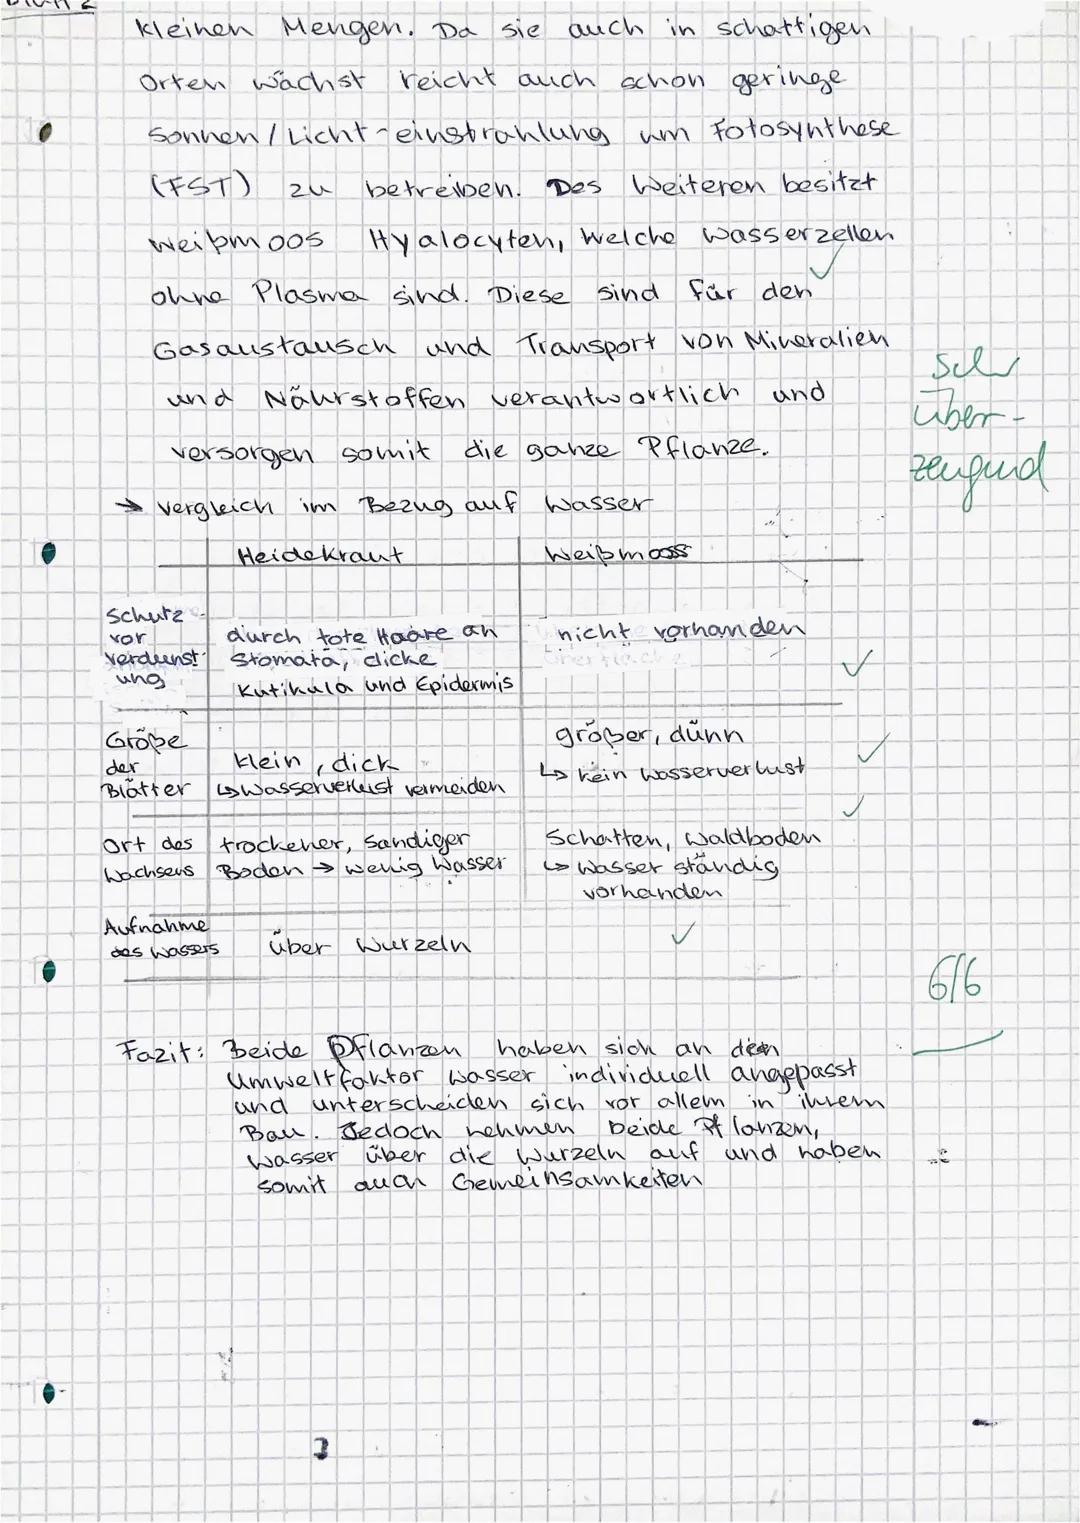 Blatt 2
kleinen Mengen. Da sie auch in schattigen
Orten wächst reicht auch schon geringe
Sonnen/Licht-einstrahlung um Fotosynthese
(FST) zu betreiben. Des Weiteren besitzt
Weißmoos Hyalocyten, welche Wasserzellen
ohne Plasma sind. Diese sind für den
Gasaustausch und Transport von Mineralien
und Nährstoffen verantwortlich und
versorgen somit die ganze Pflanze.
Sehr
über-
zeugend
→ Vergleich im Bezug auf Wasser
Heidekraut Weißmoos
Schutz vor Verdunstung
durch tote Haare an
Stomata, dicke
Kutikula und Epidermis
nicht vorhanden
Größe
der
Blätter
klein, dick
↳ Wasserverlust vermeiden
größer, dünn
↳ kein Wasserverlust
Ort des
Wachsens
trockener, sandiger
Boden → wenig Wasser
Schatten, Waldboden
↳ Wasser ständig
vorhanden
Aufnahme
des Wassers
über Wurzeln
6/6
Fazit: Beide Pflanzen haben sich an den
Umweltfaktor Wasser individuell angepasst
und unterscheiden sich vor allem in ihrem
Bau. Jedoch nehmen beide Pflanzen,
Wasser über die Wurzeln auf und haben
somit auch Gemeinsamkeiten